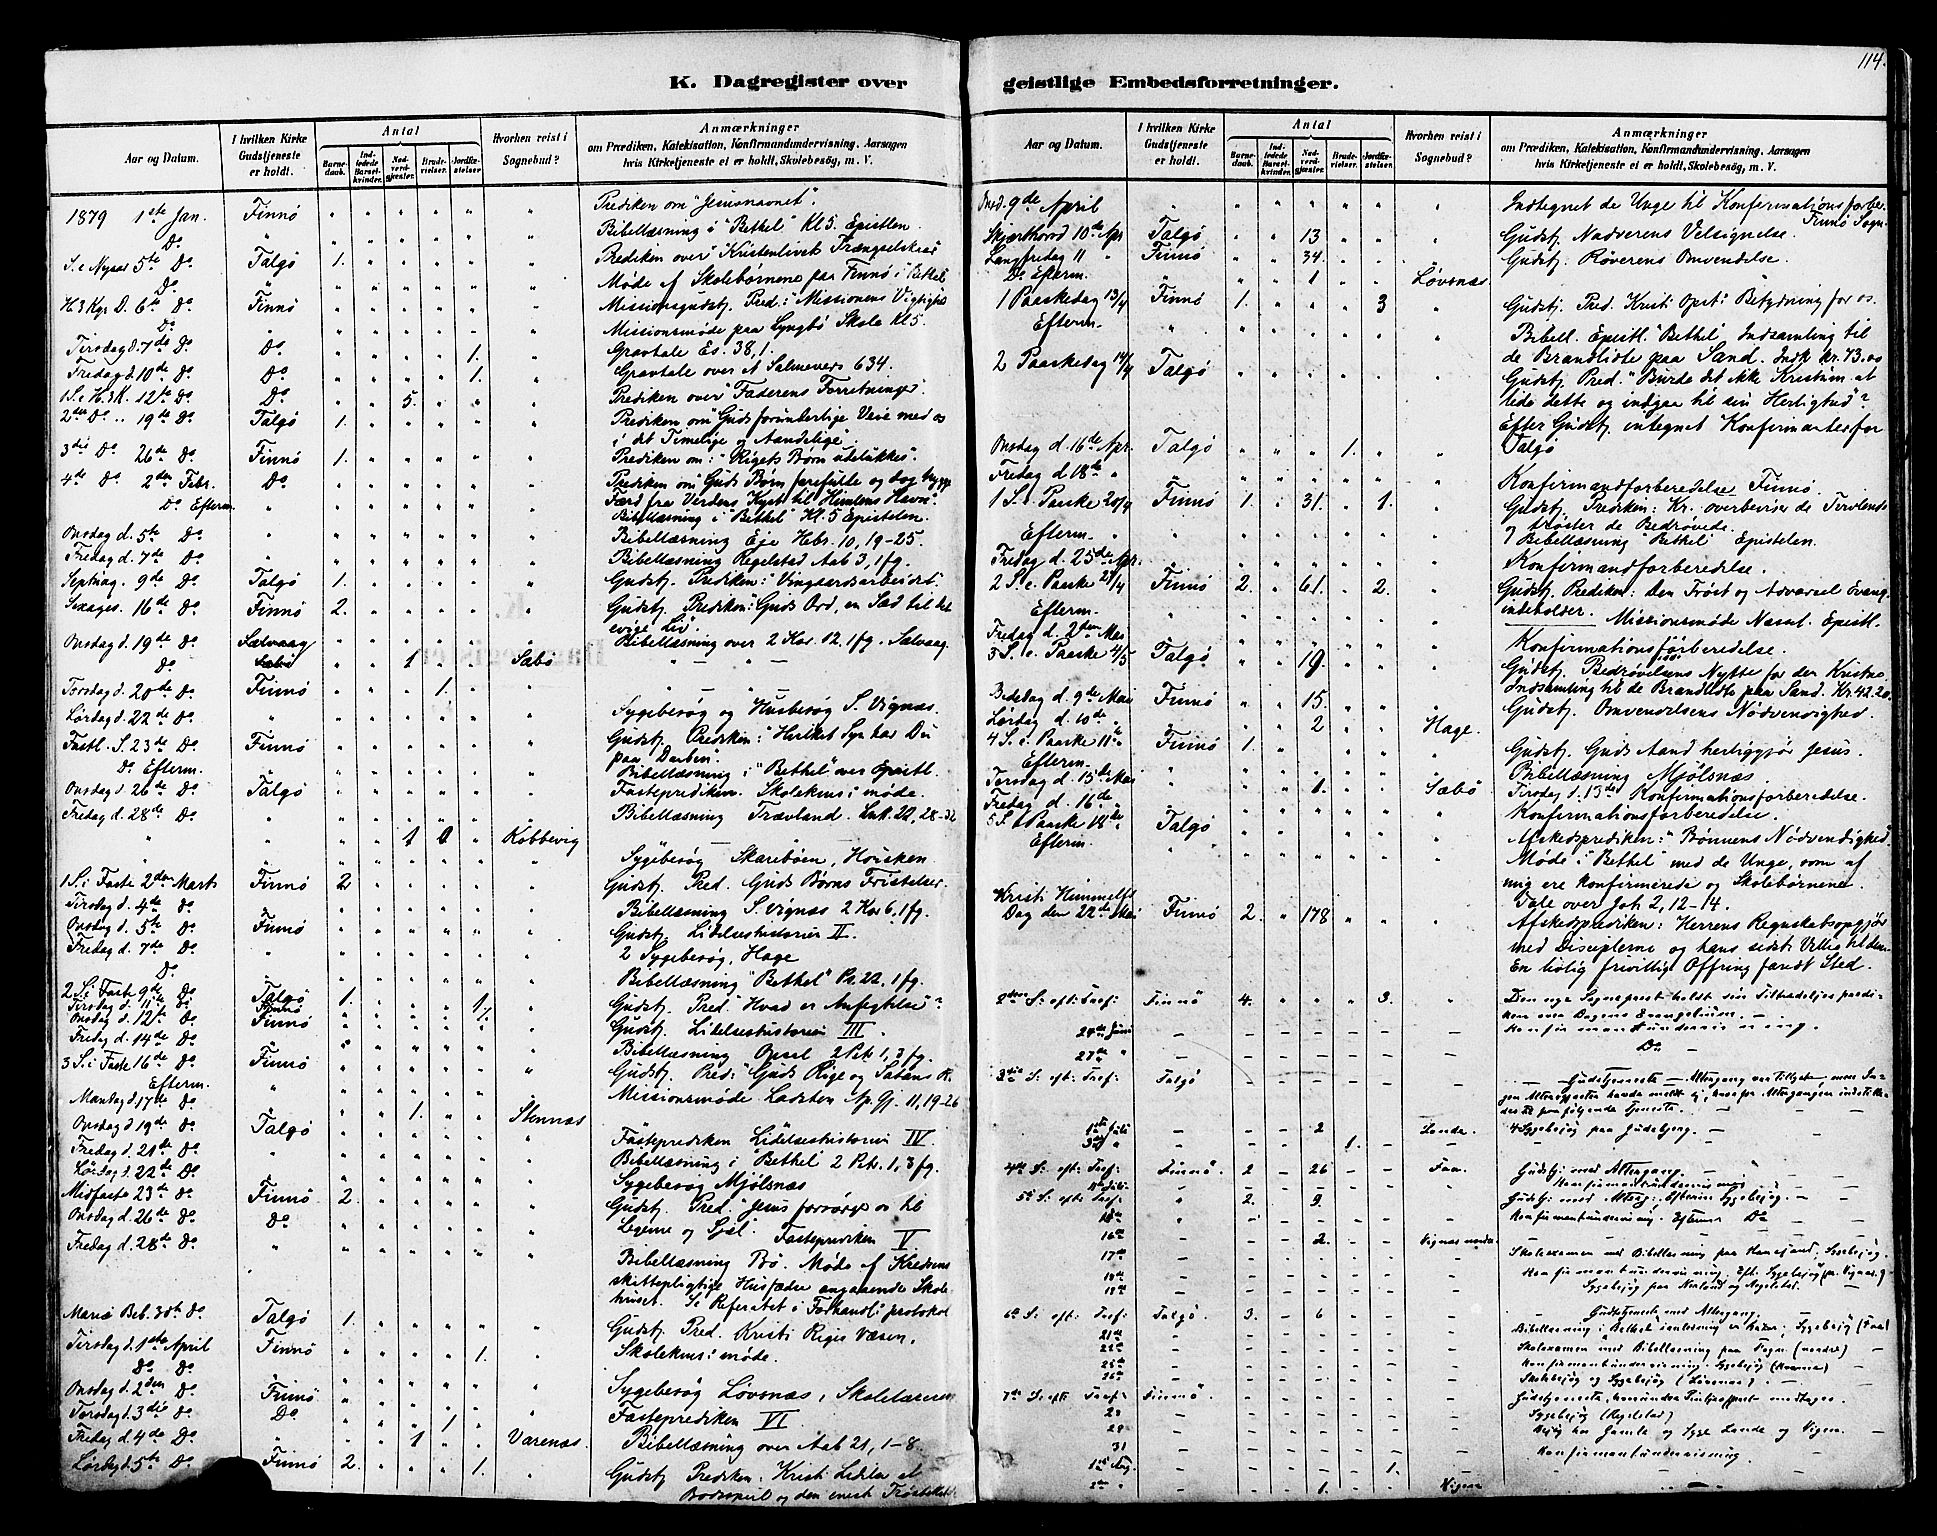 114.
K. Dagregister over geistlige Embedsforretninger.
Aar og Datum.
I hvilken Kirke Gudstjeneste er holdt.
Antal
Barnedaab.
Indledede Barselkvinder.
Nadverdgjæster.
Brudevielser.
Jordfæstelser
Hvorhen reist i Sognebud?
Anmærkninger
om Prædiken, Katekisation, Konfirmandundervisning, Aarsagen
hvis Kirketjeneste ei er holdt, Skolebesög, m. V.
1879 1ste Jan. Finnö Prediken om "Jesusnavnet".
Do Bibellæsning i "Bethel" Kl 5. Epistlen.
S. e. Nyaar 5te Do Talgö 1. Prediken over "Kristenlivets Trængselskaar
Do Möde af Skolebörnene paa Finnö i Bethel
H. 3 Kgr. D. 6te Do Finnö Missionsgudstj. Pred.: "Missionens Vigtighed
Do Missionsmöde paa Lyngbö Skole Kl 5.
Tirsdag d. 7de Do Do 1. Gravtale Es. 38,1.
Fredag d. 10de Do Do 1. Gravtale over et Salmevers 634.
1 S. e. H. 3 K. 12te Do Do 5. Prediken over "Faderens Forretninger".
2den Do 19de Do Talgö 1. Prediken om "Guds forunderlige Veie med os
i det Timelige og Aandelige".
3die Do 26de Do Finnö 1. Prediken om: "Rigets Börn udelukkes".
4de Do 2den Febr. Do Prediken om "Guds Börns farefulde og dog trygge
Færd fra Verdens Kyst til Himlens Havn".
Do Efterm. Bibellæsning i "Bethel" Kl. 5 Epistelen.
Onsdag d. 5te Do Bibellæsning Eje Hebr. 10, 19-25.
Fredag d. 7de Do Bibellæsning Regelstad Aab 3, 1 fg.
Septuag. 9de Do Talgö 1. Gudstj. Prediken: "Vingaardsarbeidet".
Sexages. 16de Do Finnö 2. Gudstj. Prediken: "Guds Ord, en Sæd til det
evige Liv".
Onsdag d. 19de Do Salvaag Bibellæsning over 2 Kor 12, 1 fg. Salvaag.
Do 1 Sæbö
Torsdag d. 20de Do Finnö 1.
Lördag d. 22de Do Sygebesög og Husbesög S. Vignæs.
Fastl. S. 23de Do Finnö Gudstj. Prediken: "Hvilket Syn har Du
paa Daaben".
Do Efterm. Bibellæsning i "Bethel" over Epistl.
Onsdag d. 26de Do Talgö Fasteprediken. Skolekms: möde.
Fredag d. 28de Do Bibellæsning Trævland. Luk. 22, 28-32
1 Kobbevig
Sygebesög Skareböen, Housken
1 S. i Faste 2den Marts Finnö 2 Gudstj. Pred. Guds Börns Fristelser.
Tirsdag d. 4de Do Bibellæsning S. Vignæs 2 Kor 6, 1 fg.
Onsdag d. 5te Do Finnö Gudstj. Lidelseshistorien II.
Fredag d. 7de Do 2 Sygebesög, Hage
Do Bibellæsning "Bethel" Ps. 22, 1 fg.
2 S. i Faste 9de Do Talgö 1. Gudstj. Pred. "Hvad er Anfegtelse"?
Tirsdag d. 11te Do Finnö 1.
Onsdag d. 12te Do Finnö Gudstj. Lidelseshistorien III.
Fredag d. 14de Do Bibellæsning Opsal 2 Pet. 1, 3 fg.
3 S. i Faste 16de Do Finnö Gudstj. Pred: "Guds Rige og Satans R.
Efterm. Missionsmöde Ladsten Ap. Gj. 11, 19-26
Mandag d. 17de Do 1. Stennæs
Onsdag d. 19de Do Talgö Fasteprediken Lidelseshistorien IV.
Fredag d. 21de Do Bibellæsning i "Bethel" 2 Pet. 1, 3 fg.
Lördag d. 22de Do Sygebesög Mjölsnæs
Midfaste 23de Do Finnö 2. Gudstj. Pred. "Jesus forsörger os til
Legeme og Sjæl".
Onsdag d. 26de Do Do Fasteprediken V
Fredag d. 28de Do Bibellæsning Bö. Möde af Kredsens
skattepligtige Husfædre angaaende Skole
huset. Se Referatet i Forhandl: protokol
Mariæ Beb. 30te Do Talgö 1. Gudstj. Pred. Kristi Riges Væsen.
Tirsdag d. 1ste April Finnö 1. Skolekms: möde.
Do Do
Onsdag d. 2den Do Finnö Sygebesög Lövsnæs, Skolelæreren
Torsdag d. 3die Do Do 1 Fasteprediken VI
Fredag d. 4de Do 1 Varenæs. Bibellæsning over Aab 21, 1-8.
Lördag d. 5te Do Finnö 2. 1. Gudstj. Prediken. Kristi Lidelse et
Bodsspeil og den eneste Tröstekilde
Aar og Datum.
I hvilken Kirke Gudstjeneste er holdt.
Antal
Barnedaab.
Indledede Barselkvinder.
Nadverdgjæster.
Brudevielser.
Jordfæstelser
Hvorhen reist i Sognebud?
Anmærkninger
om Prædiken, Katekisation, Konfirmandundervisning, Aarsagen
hvis Kirketjeneste ei er holdt, Skolebesög, m. V.
Onsd. 9de April Indtegnet de Unge til Konfirmationsforbe-
Finnö Sogn.
Skjærthorsd 10de Apr Talgö 13 Gudstj. Nadverens Velsignelse.
Langfredag 11 Finnö 34. Gudstj. Röverens Omvendelse.
Do Efterm. 1 Lövsnæs
1 Paaskedag 13/4 Finnö 1. 3 Gudstj. Pred. Kristi Opst: Betydning for os.
Efterm. Bibell. Epistl. "Bethel" Indsamling til
de Brandlidte paa Sand. Indk kr. 73.00
2 Paaskedag 14/4 Talgö Gudstj. Pred. "Burde det ikke Kristum at
lide dette og indgaa til sin Herlighed"?
Efter Gudstj. integnet Konfirmanter for
Talgö
Onsdag d. 16de Apr. Talgö 1.
Fredag d. 18de Konfirmandforberedelse Finnö.
1 S. e. Paaske 20/4 Finnö 1. 31. 1. Gudstj. Prediken: Kr. overbeviser de Tvivlende
og tröster de Bedrövede.
Efterm. Bibellæsning "Bethel" Epistelen.
Fredag d. 25de Apr. Konfirmandforberedelse.
2 S. e. Paaske 27/4 Finnö 2. 61. 2. Gudstj. Prediken: Den Tröst og Advarsel Evang.
indeholder.
Efterm. Missionsmöde Næsut. Epistl.
Fredag d. 2den Mai Konfirmationsforberedelse.
3 S. e. Paaske 4/5 Talgö 19. Gudstj. Bedrövelsens Nytte for den Kristne
Indsamling til de Brandlidte paa Sand. Kr. 42.20
Bededag d. 9de Mai Finnö 15. Gudstj. Omvendelsens Nödvendighed.
Lördag d. 10de 2 Hage.
4 S. e. Paaske 11te Finnö 1. Gudstj. Guds Aand herliggjör Jesus.
Efterm. Bibellæsning Mjölsnæs.
Torsdag d. 15de Mai 1. Sæbö Tirsdag d. 13de Konfirmationsforberedelse.
Fredag d. 16de Konfirmationsforberedelse.
5 S. e. Paaske 18de Talgö Afskedsprediken: "Bönnens Nödvendighed"
Efterm. Möde i "Bethel" med de Unge, som af
mig ere konfirmerede og Skolebörnene.
Tale over Joh 2, 12-14.
Kristi Himmelf.
Dag den 22de Mai Finnö 2. 178 Afskedsprædiken: Herrens Regnskabsopgjör
med Disciplerne og hans sidste Villie til dem.
En hölig frivillig Offring fandt Sted.
2den S. eft: Tref: Finnö 4. 3. Den nye Sognepræst holdt sin Tiltrædelsesprædi-
ken over Dagens Evangelium.
24de Juni Konfirmantundervisning.
27de Do
3die S. eft: Tref: Talgö Gudstjeneste Altergang var tillyst, men In-
gen Altergjester havde meldt sig, hvorfor Altergangen indstilles
des til paafölgende Tjeneste.
1ste Juli 2 Lande. 4 Sygebesög paa Judebjerg.
3die 1.
4de S. eft: Tref: Finnö. 2 26 Faa. Gudstj: med Altergang.
Konfirmantundervisning
5te S. eft: Tref: 2. 9. Gudstj: med Alterg: Efterm: Sygebesög.
15de Konfirmantundervisning. Efterm: Do
16de 2. Vignæs nordre
17de Skoleexamen med Bibellæsning paa Hanasand, Sygebesög.
18de Konfirmantundervisning. Eft: Sygebesög (n. Vignæs.)
19de Sygebesög paa Nærland og Reglstad.
6te S. eft: Tref: Talgö. 3. 6 Gudstjeneste med Altergang.
21de Bibellæsning i Bethel Sygebesög (Faa)
22de Skoleexamen med Bibellæsning paa Fogn (nordre)
25de Konfirmantundervisning. Sygebesög
26de Skolebesög og Sygebesög (Lövsnæs)
7de S. eft: Tref: Finnö.
28 Sygebesög (Regelstad)
29 Besög hos Gamle og Syge Lande og Vignæs.
31 Konfirmantundervisning.
1ste Aug. 1.
2den 1. Vignæs